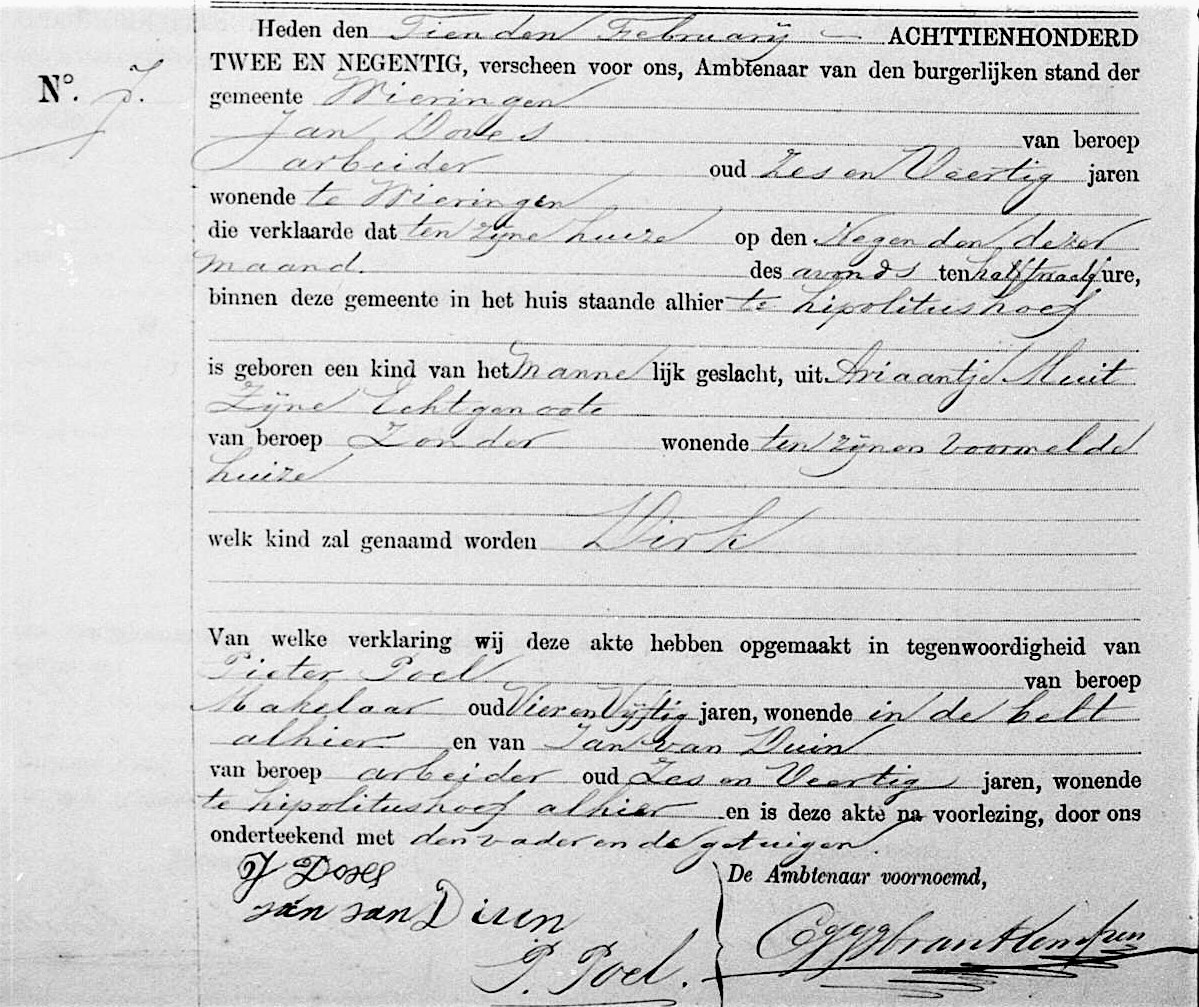 Heden den Tienden Februarij — ACHTTIENHONDERD
TWEE EN NEGENTIG, verscheen voor ons, Ambtenaar van den burgerlijken stand der
N°. 7.
gemeente Wieringen
Jan Doves van beroep
arbeider oud Zes en Veertig jaren
wonende te Wieringen
die verklaarde dat ten zijne huize op den Negenden dezer
maand. des avonds ten half twaalf ure,
binnen deze gemeente in het huis staande alhier te hipolitushoef
is geboren een kind van het Manne lijk geslacht, uit Ariaantje Muit
Zijne Echtgenoote
van beroep Zonder wonende ten zijnen voormelde
huize
welk kind zal genaamd worden Dirk
Van welke verklaring wij deze akte hebben opgemaakt in tegenwoordigheid van
Pieter Poel van beroep
Makelaar oud Vier en Vijftig jaren, wonende in de belt
alhier en van Jan van Duin
van beroep arbeider oud Zes en Veertig jaren, wonende
te hipolitushoef alhier en is deze akte na voorlezing, door ons
onderteekend met den vader en de getuigen.
J Doves
De Ambtenaar voornoemd,
Jan van Duin
P. Poel.